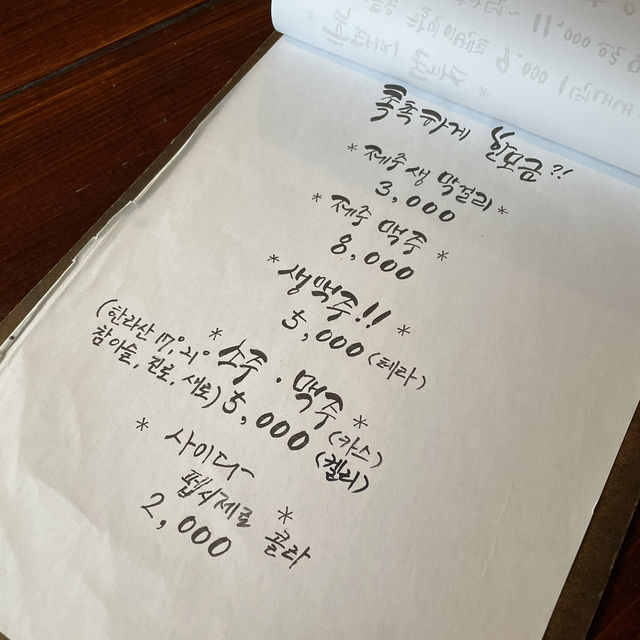 촉촉하게 한모금?!
*제주 생 막걸리*
3,000
*제주 맥주*
8,000
*생맥주!!*
5,000 (테라)
*소주 · 맥주*
(한라산 17°, 21° 참이슬, 진로, 새로) 5,000 (카스)
(켈리)
*사이다~
펩시제로 콜라*
2,000